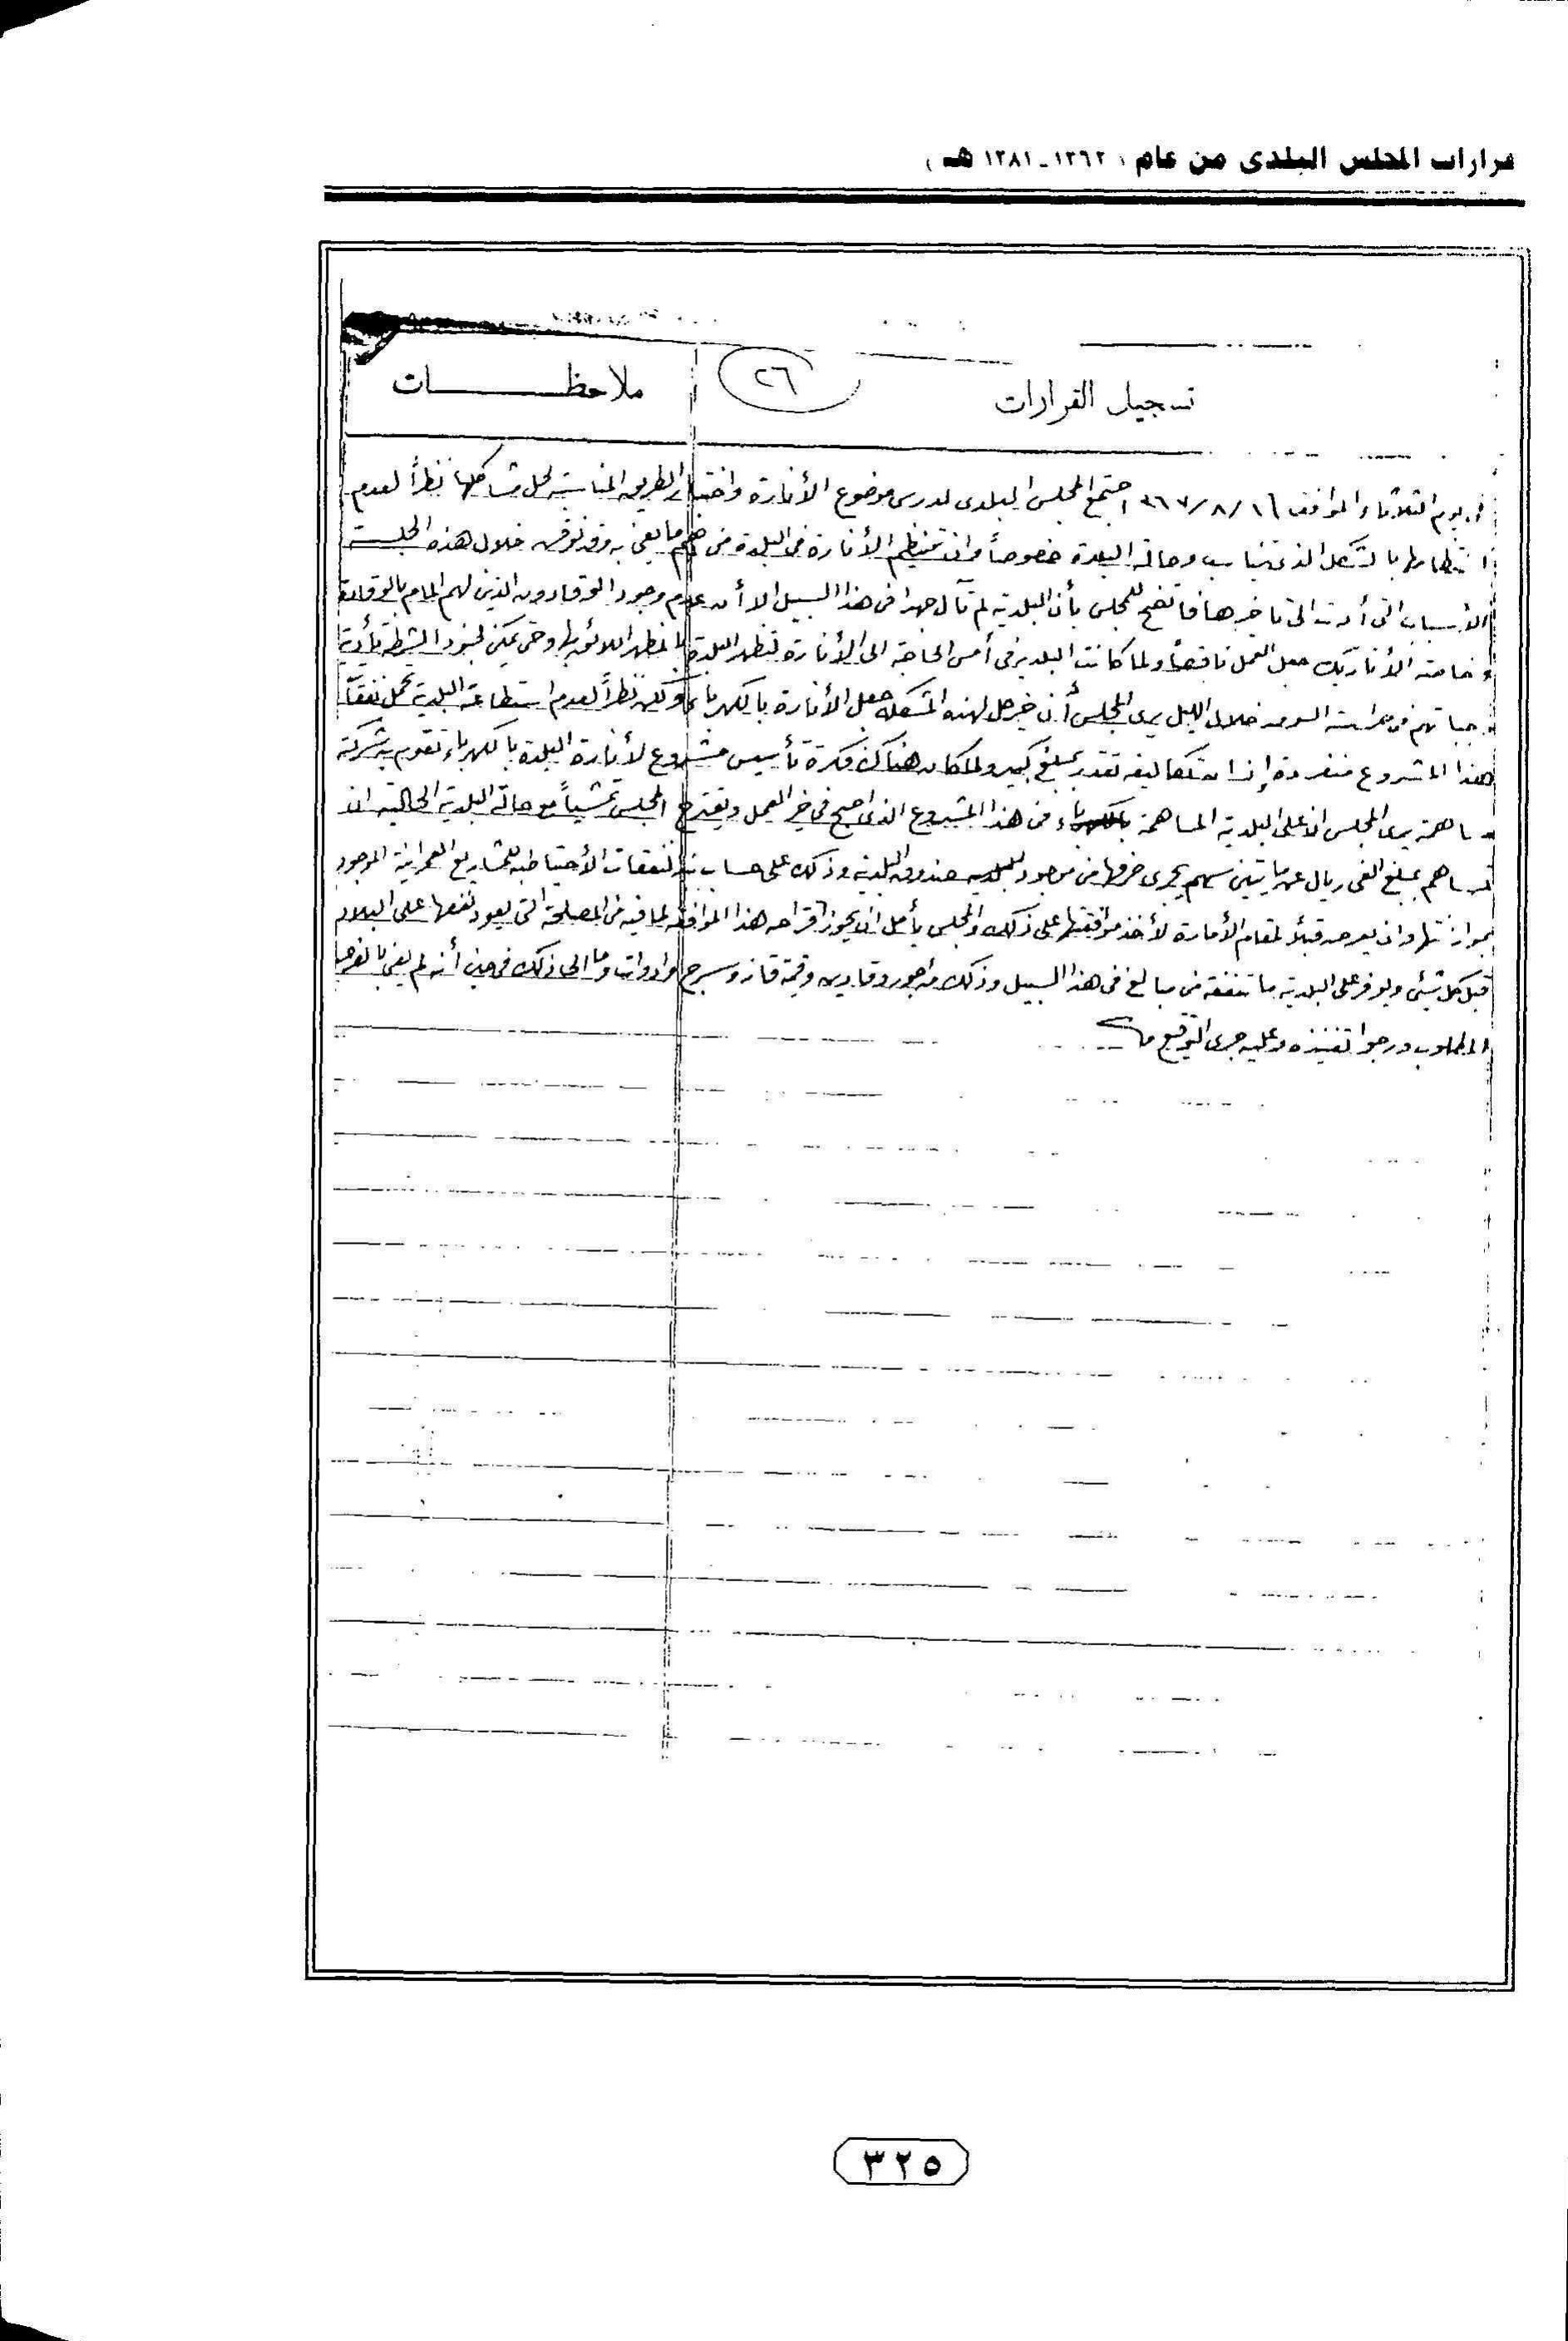 قرارات المجلس البلدى من عام ( ١٣٦٢ - ١٣٨١ هـ )
تسجيل القرارات ٢٦ ملاحظات
فى يوم الثلاثاء الموافق ١٦/٨/١٣٦٧ اجتمع المجلس البلدى لدرس موضوع الأنارة واختيار الطريق المناسبة لحل مشاكلها نظراً لعدم
انتظامها بالشكل الذى يتناسب وحالة البلدة خصوصاً وان تنظيم الأنارة فى البلدة من أهم ما يعنى به وقد نوقش خلال هذه الجلسة
الأسباب التى أدت الى تاخيرها فاتضح للمجلس بأن البلدية لم تأل جهدا فى هذا السبيل الا أن عدم وجود الوقادون الذين لهم المام بالوقادة
وخاصة الأتاريك جعل العمل ناقصاً ولما كانت البلدة فى أمس الحاجة الى الأنارة لتظهر البلدة بالمظهر اللائق بها وحتى يمكن لجنود الشرطة تأدية
واجباتهم فى حراسة السوق خلال الليل يرى المجلس أن خير حل لهذه المشكلة جعل الأنارة بالكهرباء ولكن نظراً لعدم استطاعة البلدية تحمل نفقات
هذا المشروع منفردة إذ ان تكاليفه تقدر بمبلغ كبير ولما كان هناك فكرة تأسيس مشروع لأنارة البلدة بالكهرباء تقوم به شركة
مساهمة يرى المجلس ان على البلدية المساهمة فى هذا المشروع الذى اصبح فى حيز العمل ويقترح المجلس تمشياً مع حالة البلدية الحالية ان
تساهم بمبلغ الفى ريال عن مايتين سهم يجرى صرفها من موجود صندوق البلدية وذلك على حساب بند النفقات الأحتياطية للمشاريع العمرانية الموجود
بموازنتها وان يعرض قبلاً لمقام الأمارة لأخذ موافقتها على ذلك والمجلس يأمل ان يحوز اقتراحه هذا الموافقة لما فيه من المصلحة التى يعود نفعها على البلاد
قبل كل شيئ ويوفر على البلدية ما تنفقه من مبالغ فى هذا السبيل وذلك من اجور وقادين وقيمة قاز وسرج وادوات وما الى ذلك فى حين أنه لم يفى بالغرض
المطلوب ورجوا تنفيذه وعليه جرى التوقيع
٣٢٥